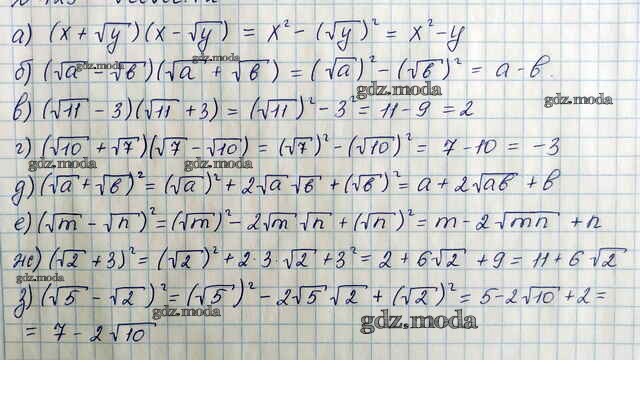 а) (x + √y)(x - √y) = x² - (√y)² = x² - y
б) (√a - √в)(√a + √в) = (√a)² - (√в)² = a - в.
gdz.moda gdz.moda
gdz.moda gdz.moda
в) (√11 - 3)(√11 + 3) = (√11)² - 3² = 11 - 9 = 2
г) (√10 + √7)(√7 - √10) = (√7)² - (√10)² = 7 - 10 = -3
gdz.moda gdz.moda
д) (√a + √в)² = (√a)² + 2√a √в + (√в)² = a + 2√aв + в
е) (√m - √n)² = (√m)² - 2√m √n + (√n)² = m - 2√mn + n
ж) (√2 + 3)² = (√2)² + 2·3·√2 + 3² = 2 + 6√2 + 9 = 11 + 6√2
gdz.moda
з) (√5 - √2)² = (√5)² - 2√5 √2 + (√2)² = 5 - 2√10 + 2 =
gdz.moda gdz.moda
= 7 - 2√10